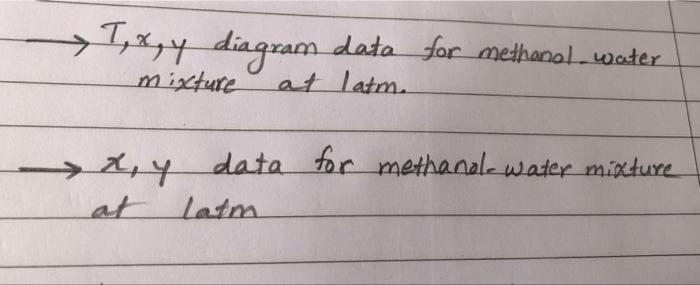 → T, x, y diagram data for methanol-water
mixture at 1atm.
→ x, y data for methanol-water mixture
at 1atm